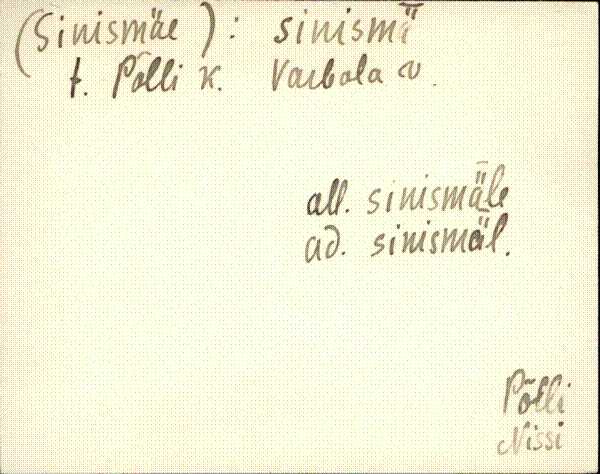 (Sinismäe): sinismǟ
t. Põlli k. Varbola v.
all. sinismǟle
ad. sinismǟl.
Põlli
Nissi